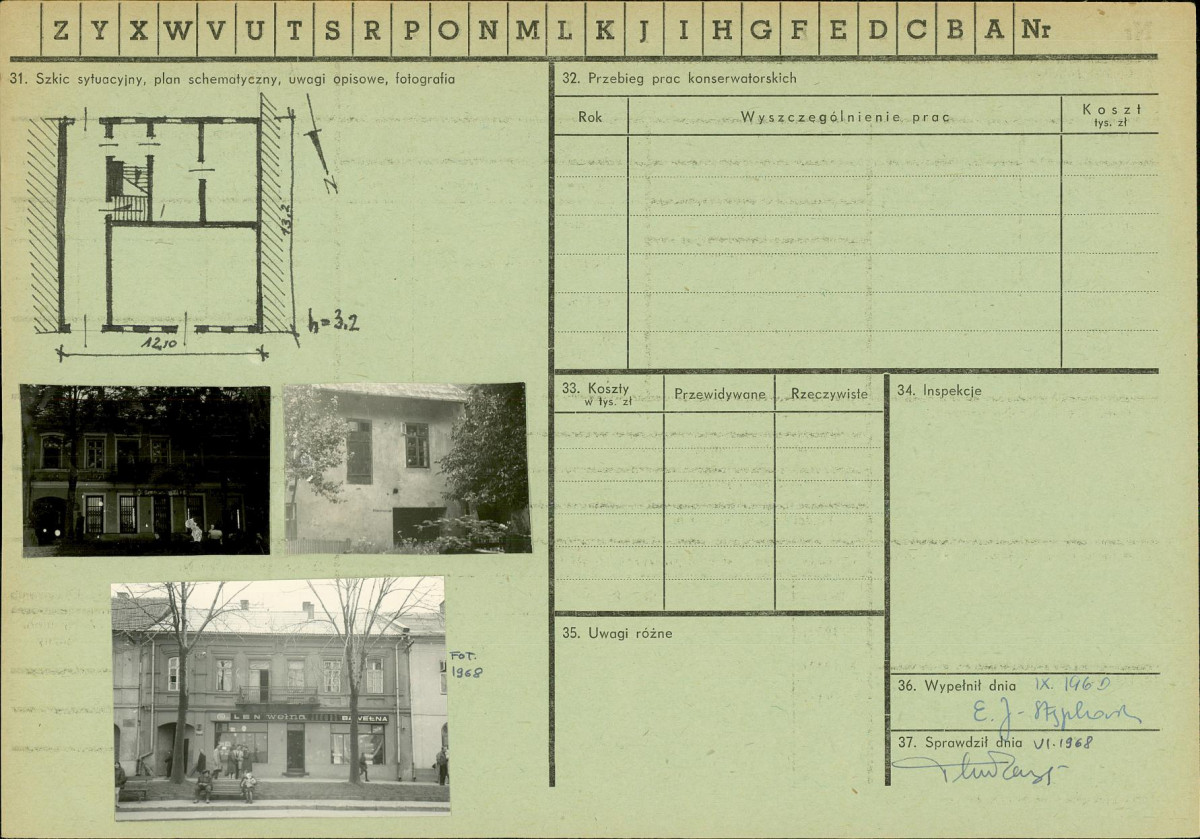 Z Y X W V U T S R P O N M L K J I H G F E D C B A Nr
31. Szkic sytuacyjny, plan schematyczny, uwagi opisowe, fotografia
N
13,2
h=3.2
12,10
LEN wełna BAWEŁNA
FOT.
1968
32. Przebieg prac konserwatorskich
Rok
Wyszczególnienie prac
Koszt
tys. zł
33. Koszty
w tys. zł
Przewidywane
Rzeczywiste
34. Inspekcje
35. Uwagi różne
36. Wypełnił dnia IX. 1960
E. J-
37. Sprawdził dnia VI.1968